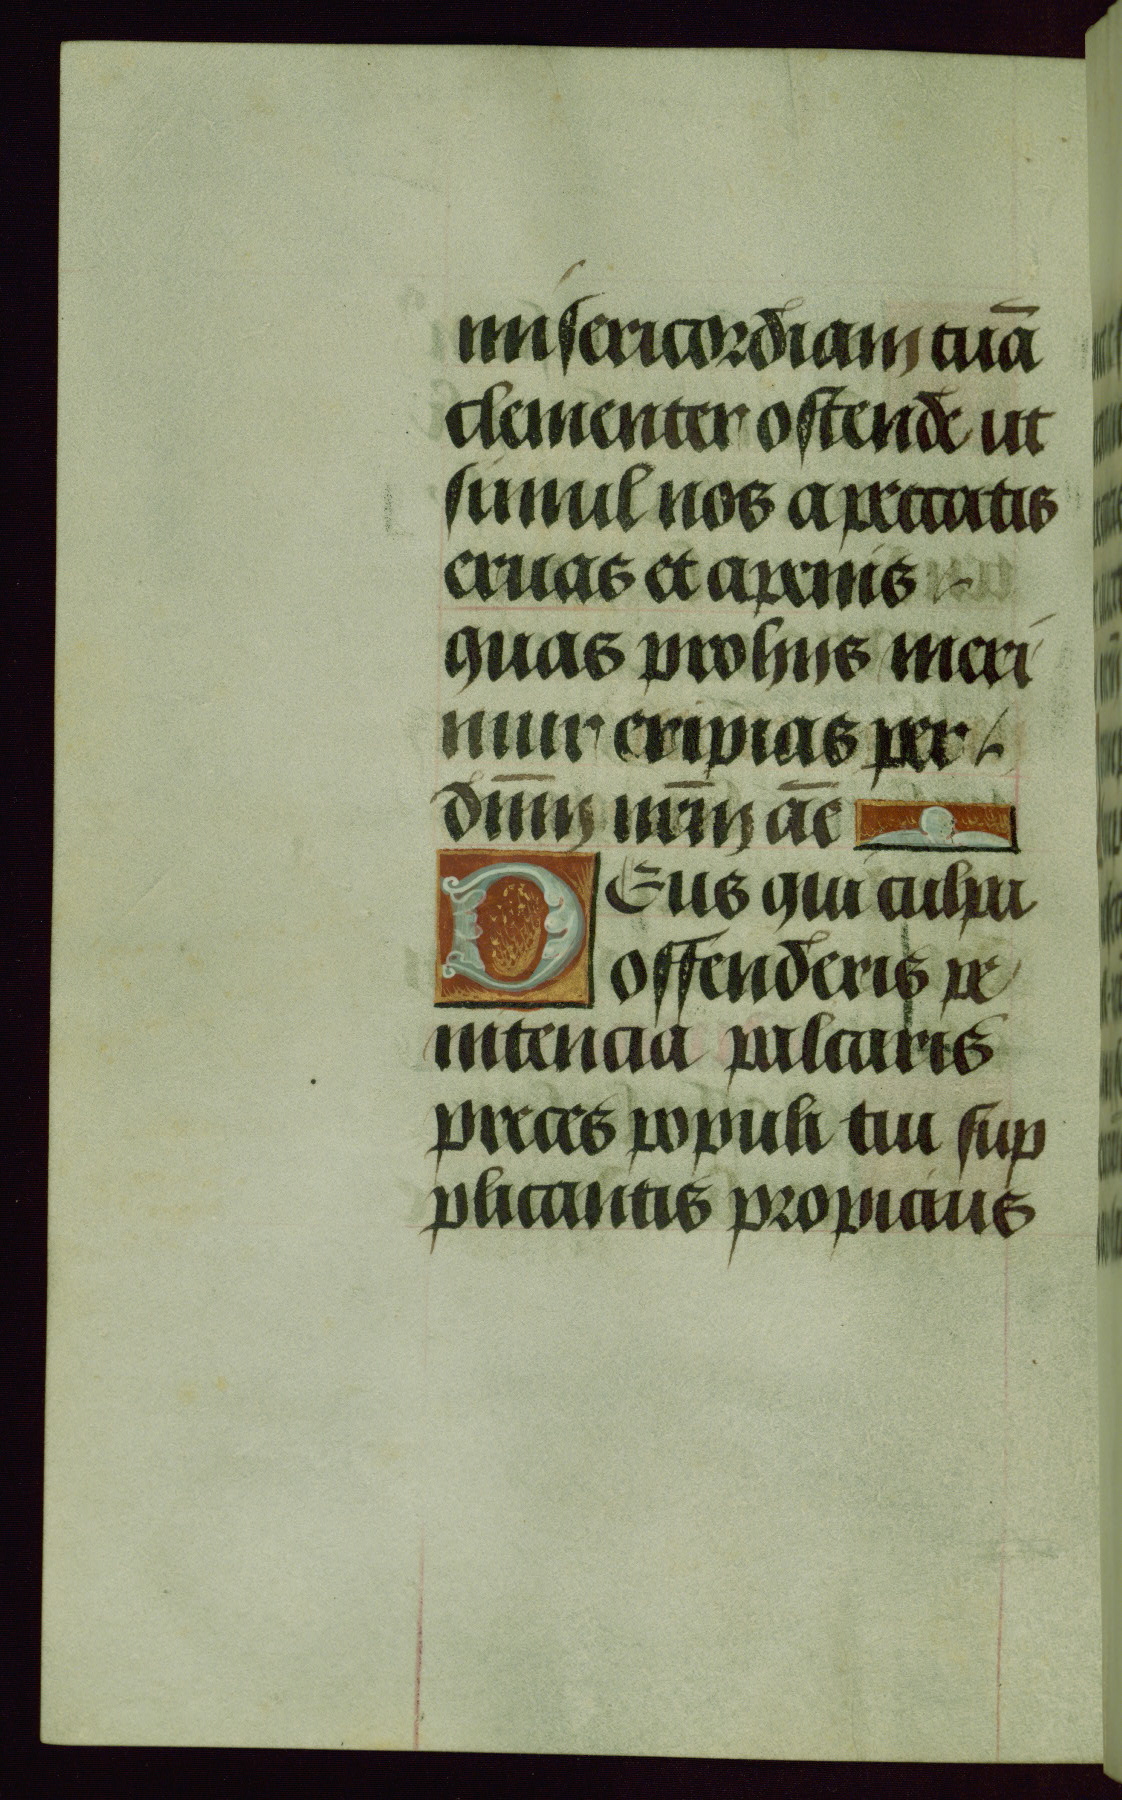 misericordiam tuā
clementer ostende ut
simul nos a peccatis
eruas et a penis
quas pro hijs meri
mur eripias per
dn̄m nr̄m āē
Deus qui culpa
offenderis pe
nitencia placaris
preces populi tui sup
plicantis propicius